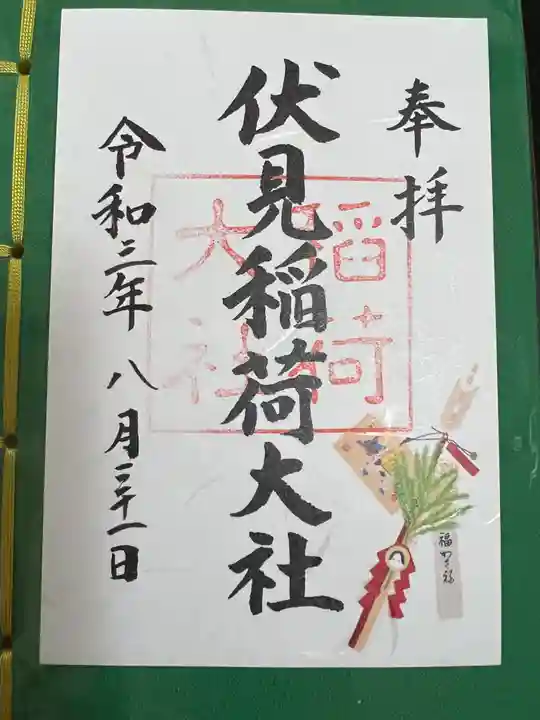 奉拝
伏見稲荷大社
稲荷
大社
令和三年八月二十一日